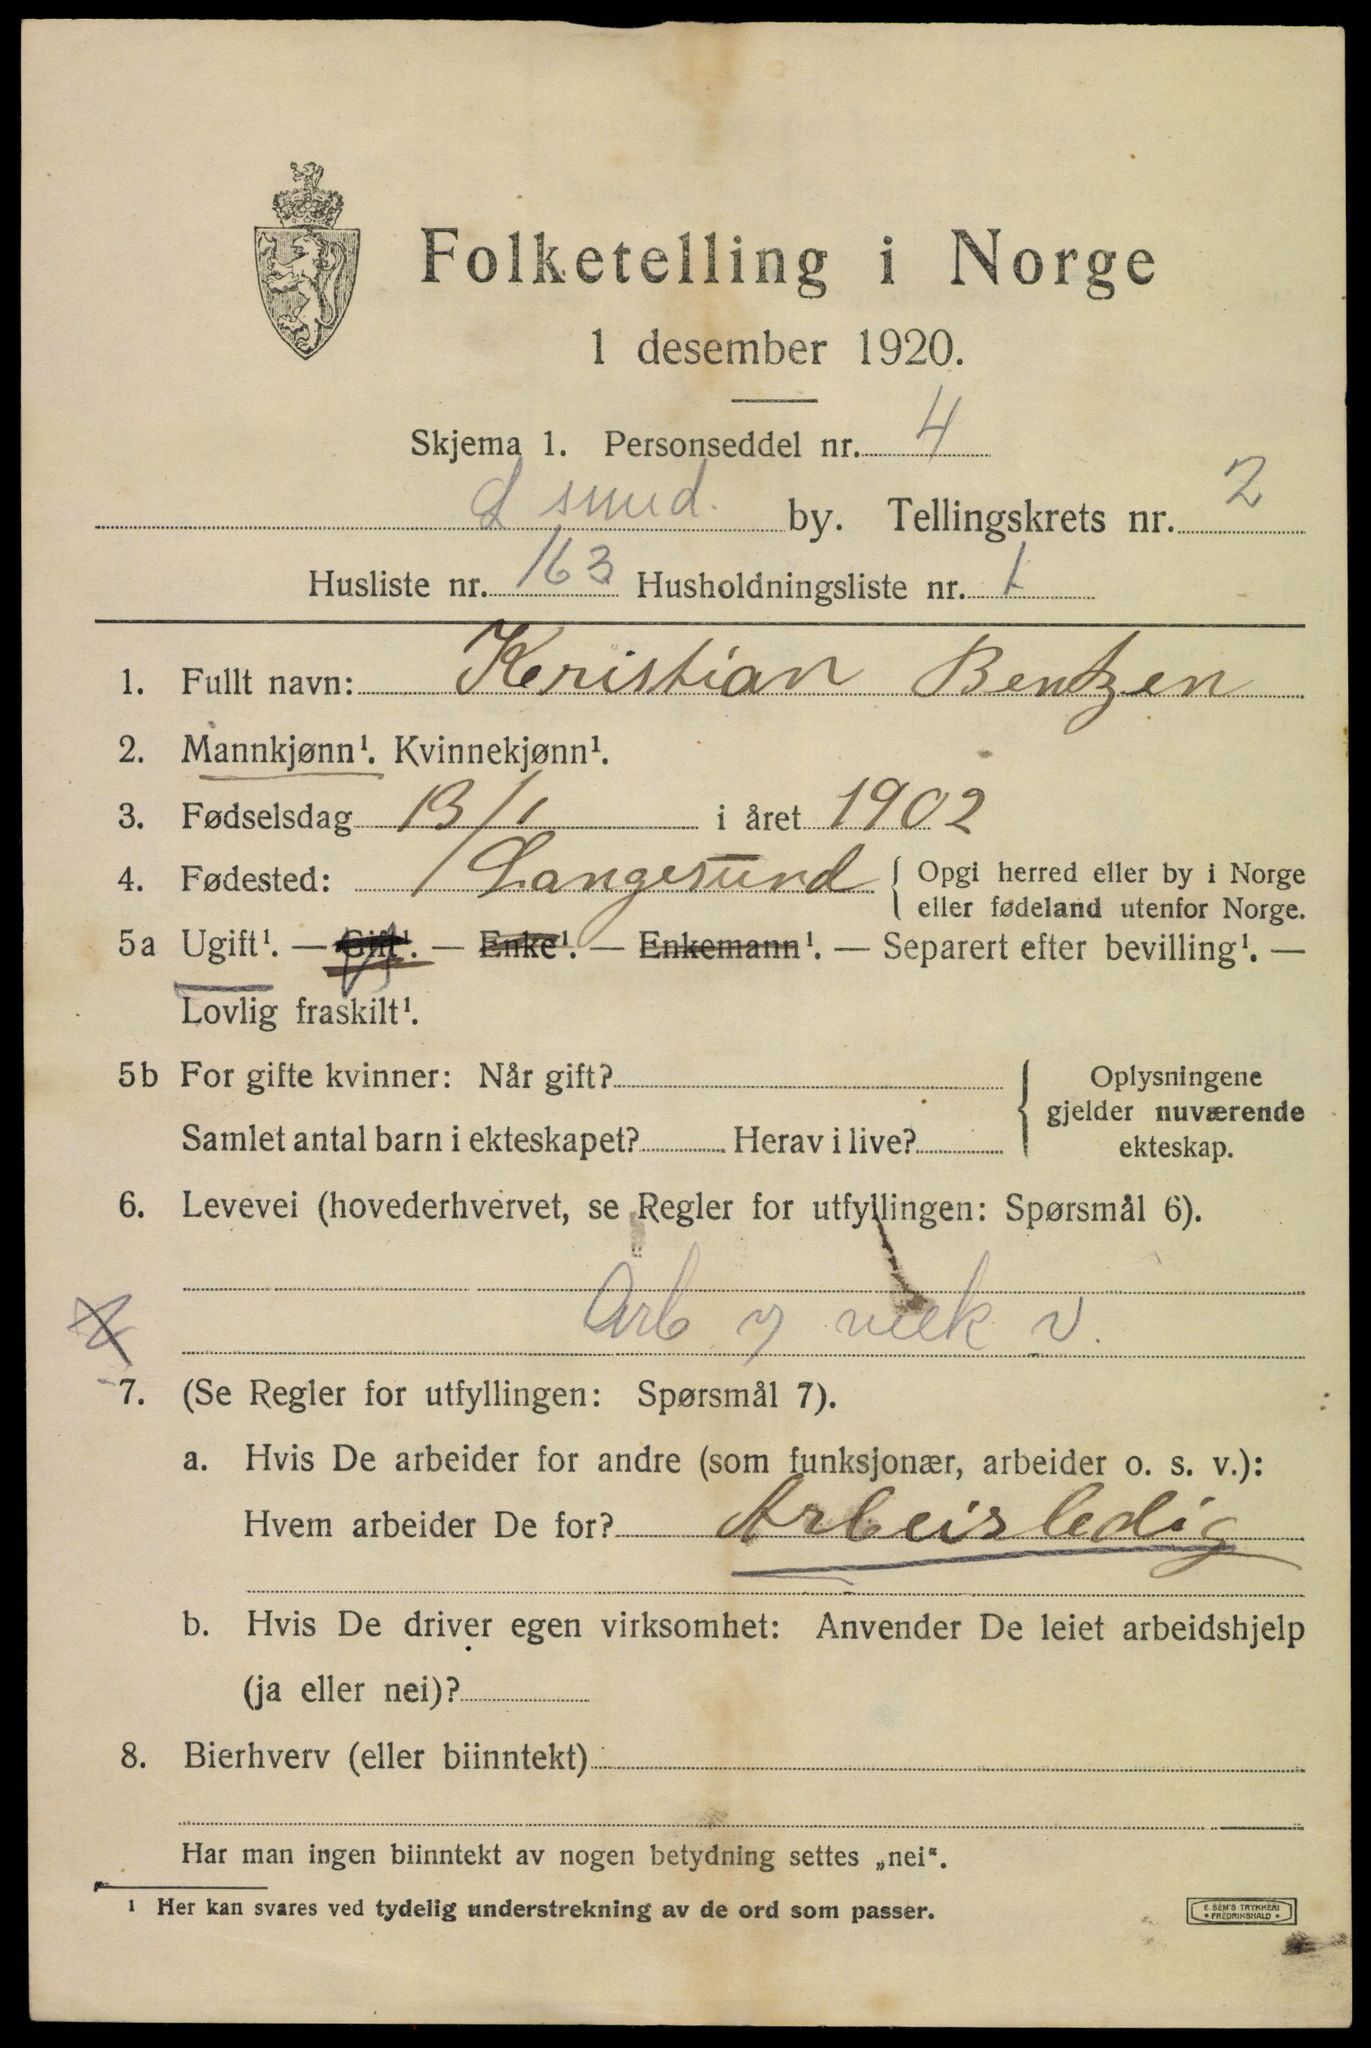 Folketelling i Norge
1 desember 1920.
Skjema 1. Personseddel nr. 4
L sund. by. Tellingskrets nr. 2
Husliste nr. 163 Husholdningsliste nr. 1
1. Fullt navn: Kristian Bentzen
2. Mannkjønn¹. Kvinnekjønn¹.
3. Fødselsdag 13/1 i året 1902
4. Fødested: Langesund { Opgi herred eller by i Norge
eller fødeland utenfor Norge.
5a Ugift¹. — Gift¹. — Enke¹. — Enkemann¹. — Separert efter bevilling¹. —
Lovlig fraskilt¹.
5b For gifte kvinner: Når gift?
Samlet antal barn i ekteskapet? Herav i live?
Oplysningene
gjelder nuværende
ekteskap.
6. Levevei (hovederhvervet, se Regler for utfyllingen: Spørsmål 6).
Arb mek v.
7. (Se Regler for utfyllingen: Spørsmål 7).
a. Hvis De arbeider for andre (som funksjonær, arbeider o. s. v.):
Hvem arbeider De for? Arbeisledig
b. Hvis De driver egen virksomhet: Anvender De leiet arbeidshjelp
(ja eller nei)?
8. Bierhverv (eller biinntekt)
Har man ingen biinntekt av nogen betydning settes „nei“.
¹ Her kan svares ved tydelig understrekning av de ord som passer.
E. SEM'S TRYKKERI
* FREDRIKSHALD *